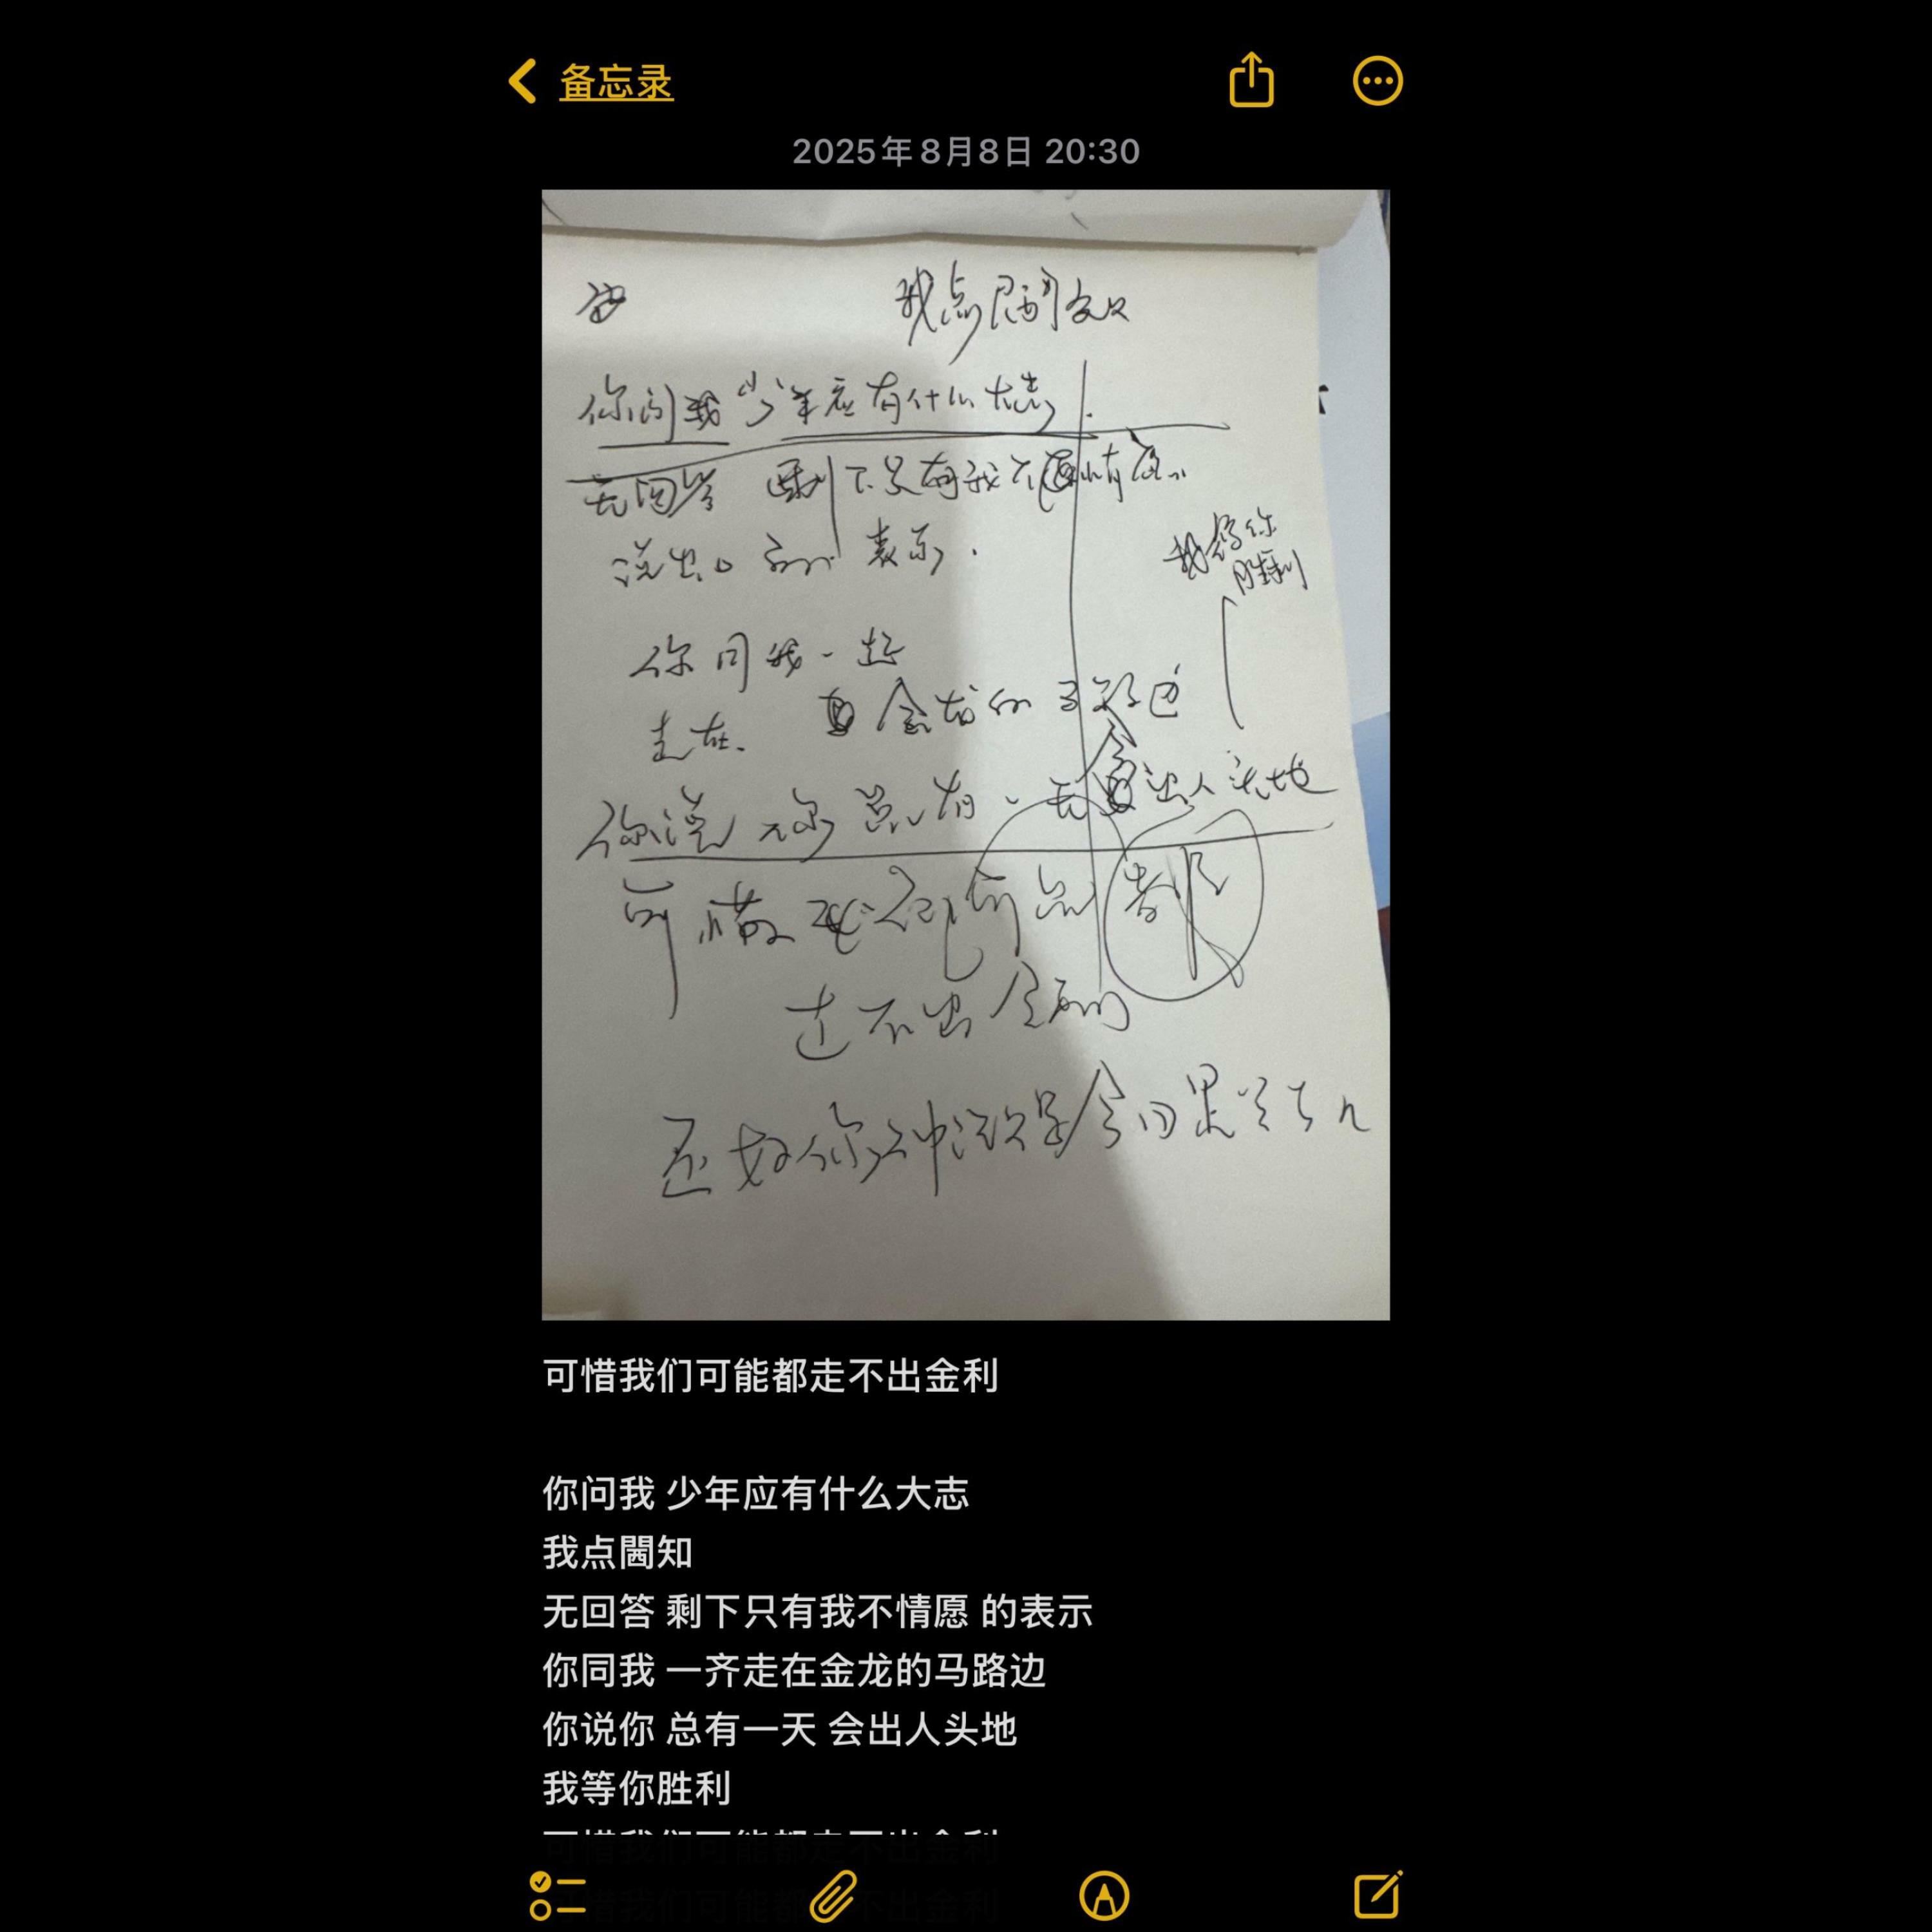 备忘录
2025年8月8日 20:30
我点閪知
你问我 少年应有什么大志
无回答 剩下只有我不情愿
说出口的 表示.
我等你
胜利
你同我一起
走在. 金龙的马路边
你说 你 总有一天会出人头地
可惜我们可能都
走不出金利
还好你
可惜我们可能都走不出金利
你问我 少年应有什么大志
我点閪知
无回答 剩下只有我不情愿 的表示
你同我 一齐走在金龙的马路边
你说你 总有一天 会出人头地
我等你胜利
可惜我们可能都走不出金利